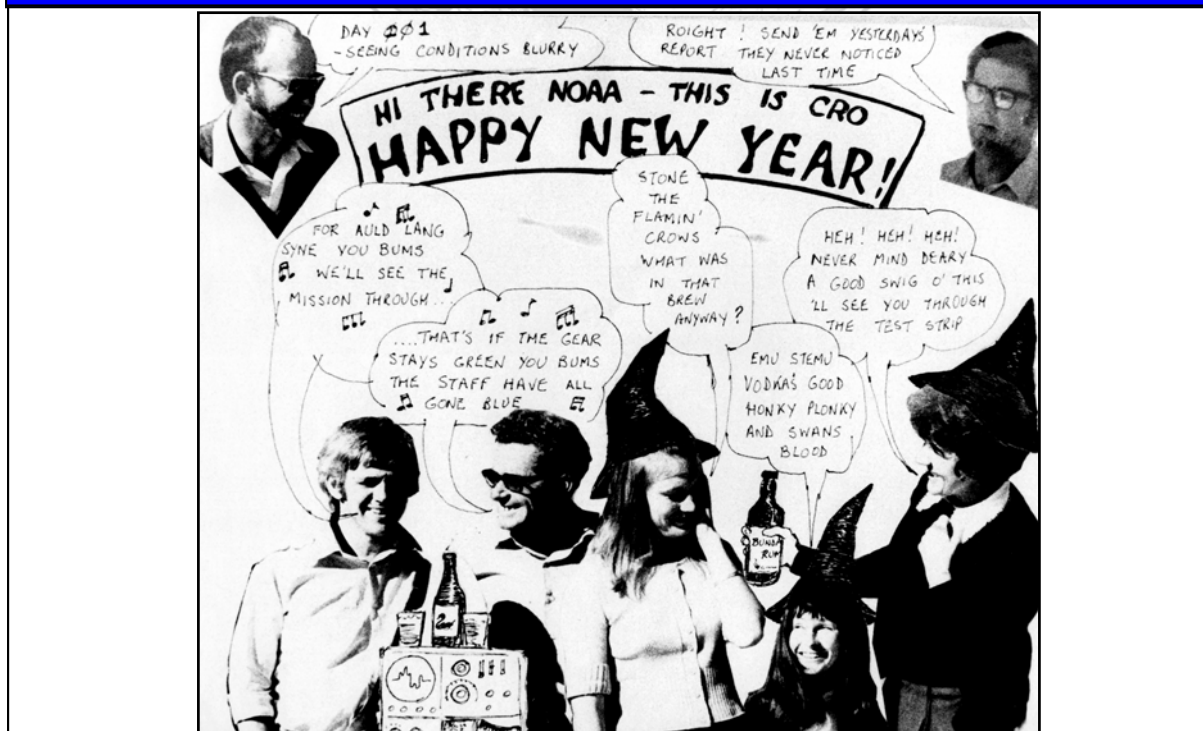 DAY 001
- SEEING CONDITIONS BLURRY
ROIGHT ! SEND 'EM YESTERDAYS
REPORT THEY NEVER NOTICED
LAST TIME
HI THERE NOAA - THIS IS CRO
HAPPY NEW YEAR!
FOR AULD LANG
SYNE YOU BUMS
WE'LL SEE THE
MISSION THROUGH...
....THAT'S IF THE GEAR
STAYS GREEN YOU BUMS
THE STAFF HAVE ALL
GONE BLUE
STONE
THE
FLAMIN'
CROWS
WHAT WAS
IN THAT
BREW
ANYWAY?
HEH! HEH! HEH!
NEVER MIND DEARY
A GOOD SWIG O' THIS
'LL SEE YOU THROUGH
THE TEST STRIP
EMU STEMU
VODKAS GOOD
HONKY PLONKY
AND SWANS
BLOOD
BUNDA
RUM